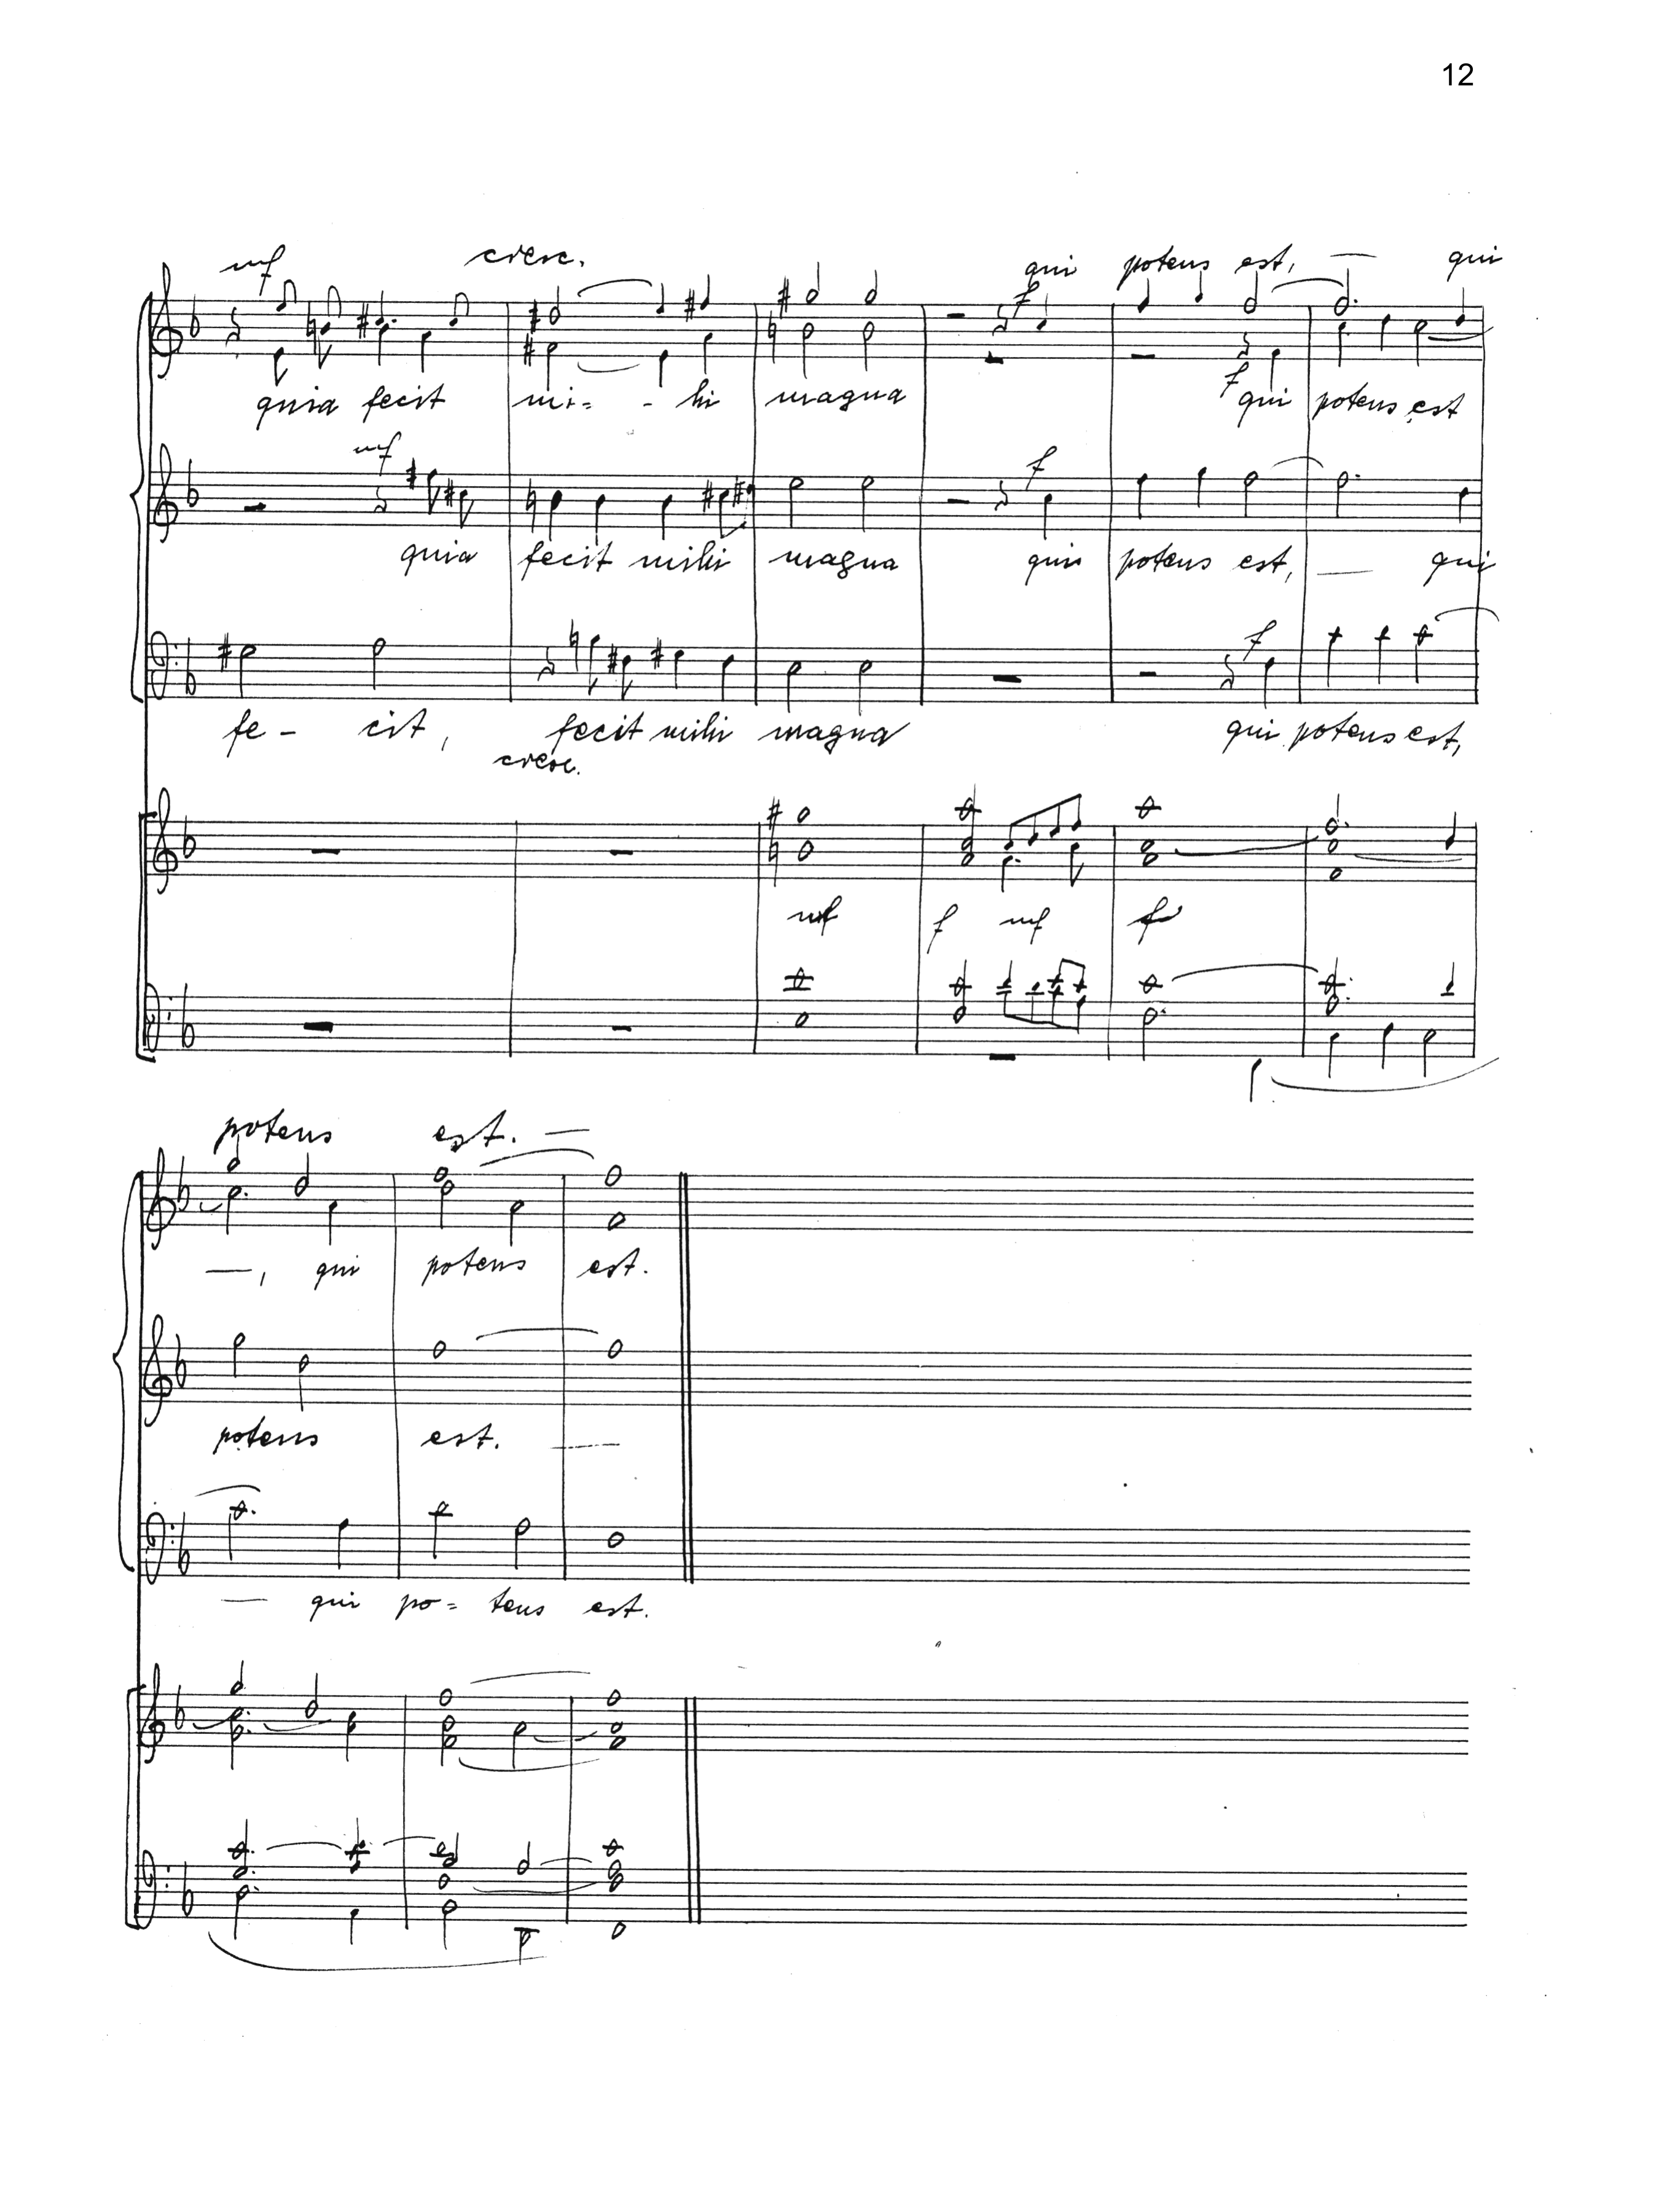 12
mf cresc. qui potens est, — qui
f
f
quia fecit mi- - hi magna qui potens est
mf f
quia fecit mihi magna qui potens est, — qui
f
fe - cit, fecit mihi magna qui potens est,
cresc.
mf f mf f
potens est. —
—, qui potens est.
potens est. —
— qui po= tens est.